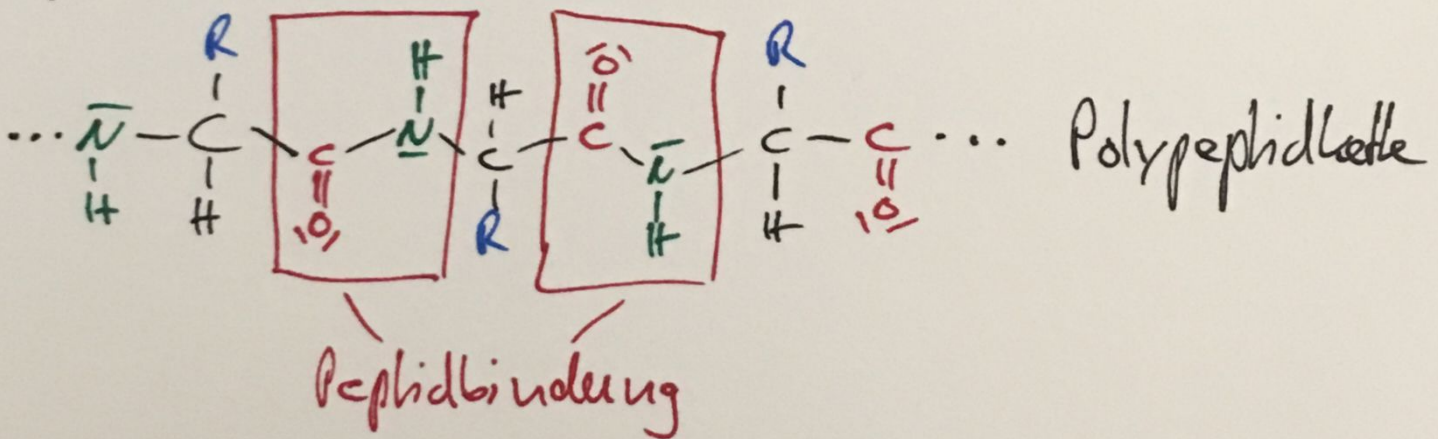 R H H |O| R
... N – C – C – N – C – C – N – C – C ... Polypeptidkette
H H |O| R H H |O|
Peptidbindung